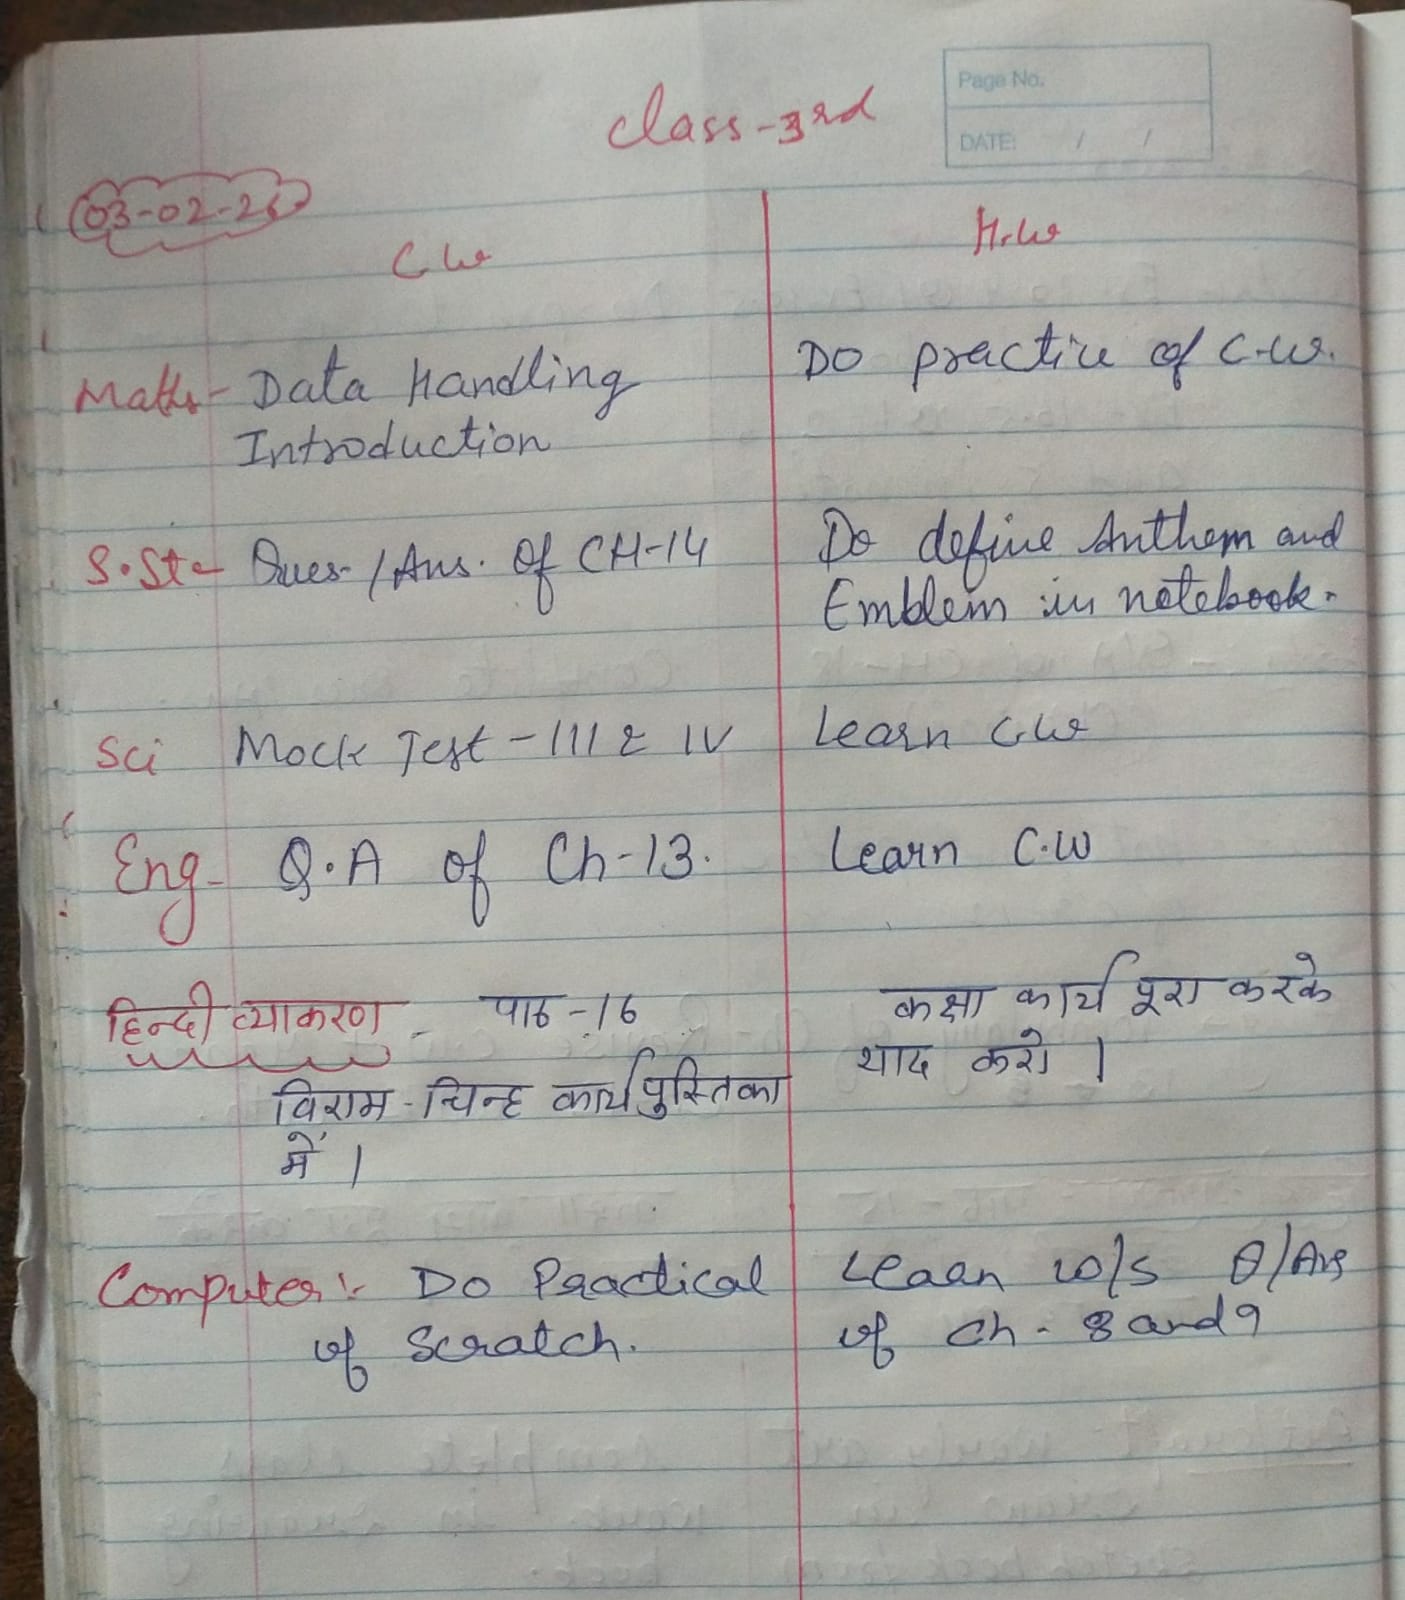 Page No.
DATE: / /
Class-3rd
03-02-26
C.W
H.W
Maths- Data Handling
Introduction
Do practice of C.W.
S.St- Ques./Ans. Of CH-14
Do define Anthem and
Emblem in notebook.
Sci Mock Test - III & IV
Learn C.W
Eng- Q.A of Ch-13.
Learn C.W
हिन्दी व्याकरण - पाठ-16
विराम-चिन्ह कार्यपुस्तिका
में।
कक्षा कार्य पूरा करके
याद करो।
Computer:- Do Practical
of Scratch.
Learn w/s Q/Ans
of Ch-8 and 9